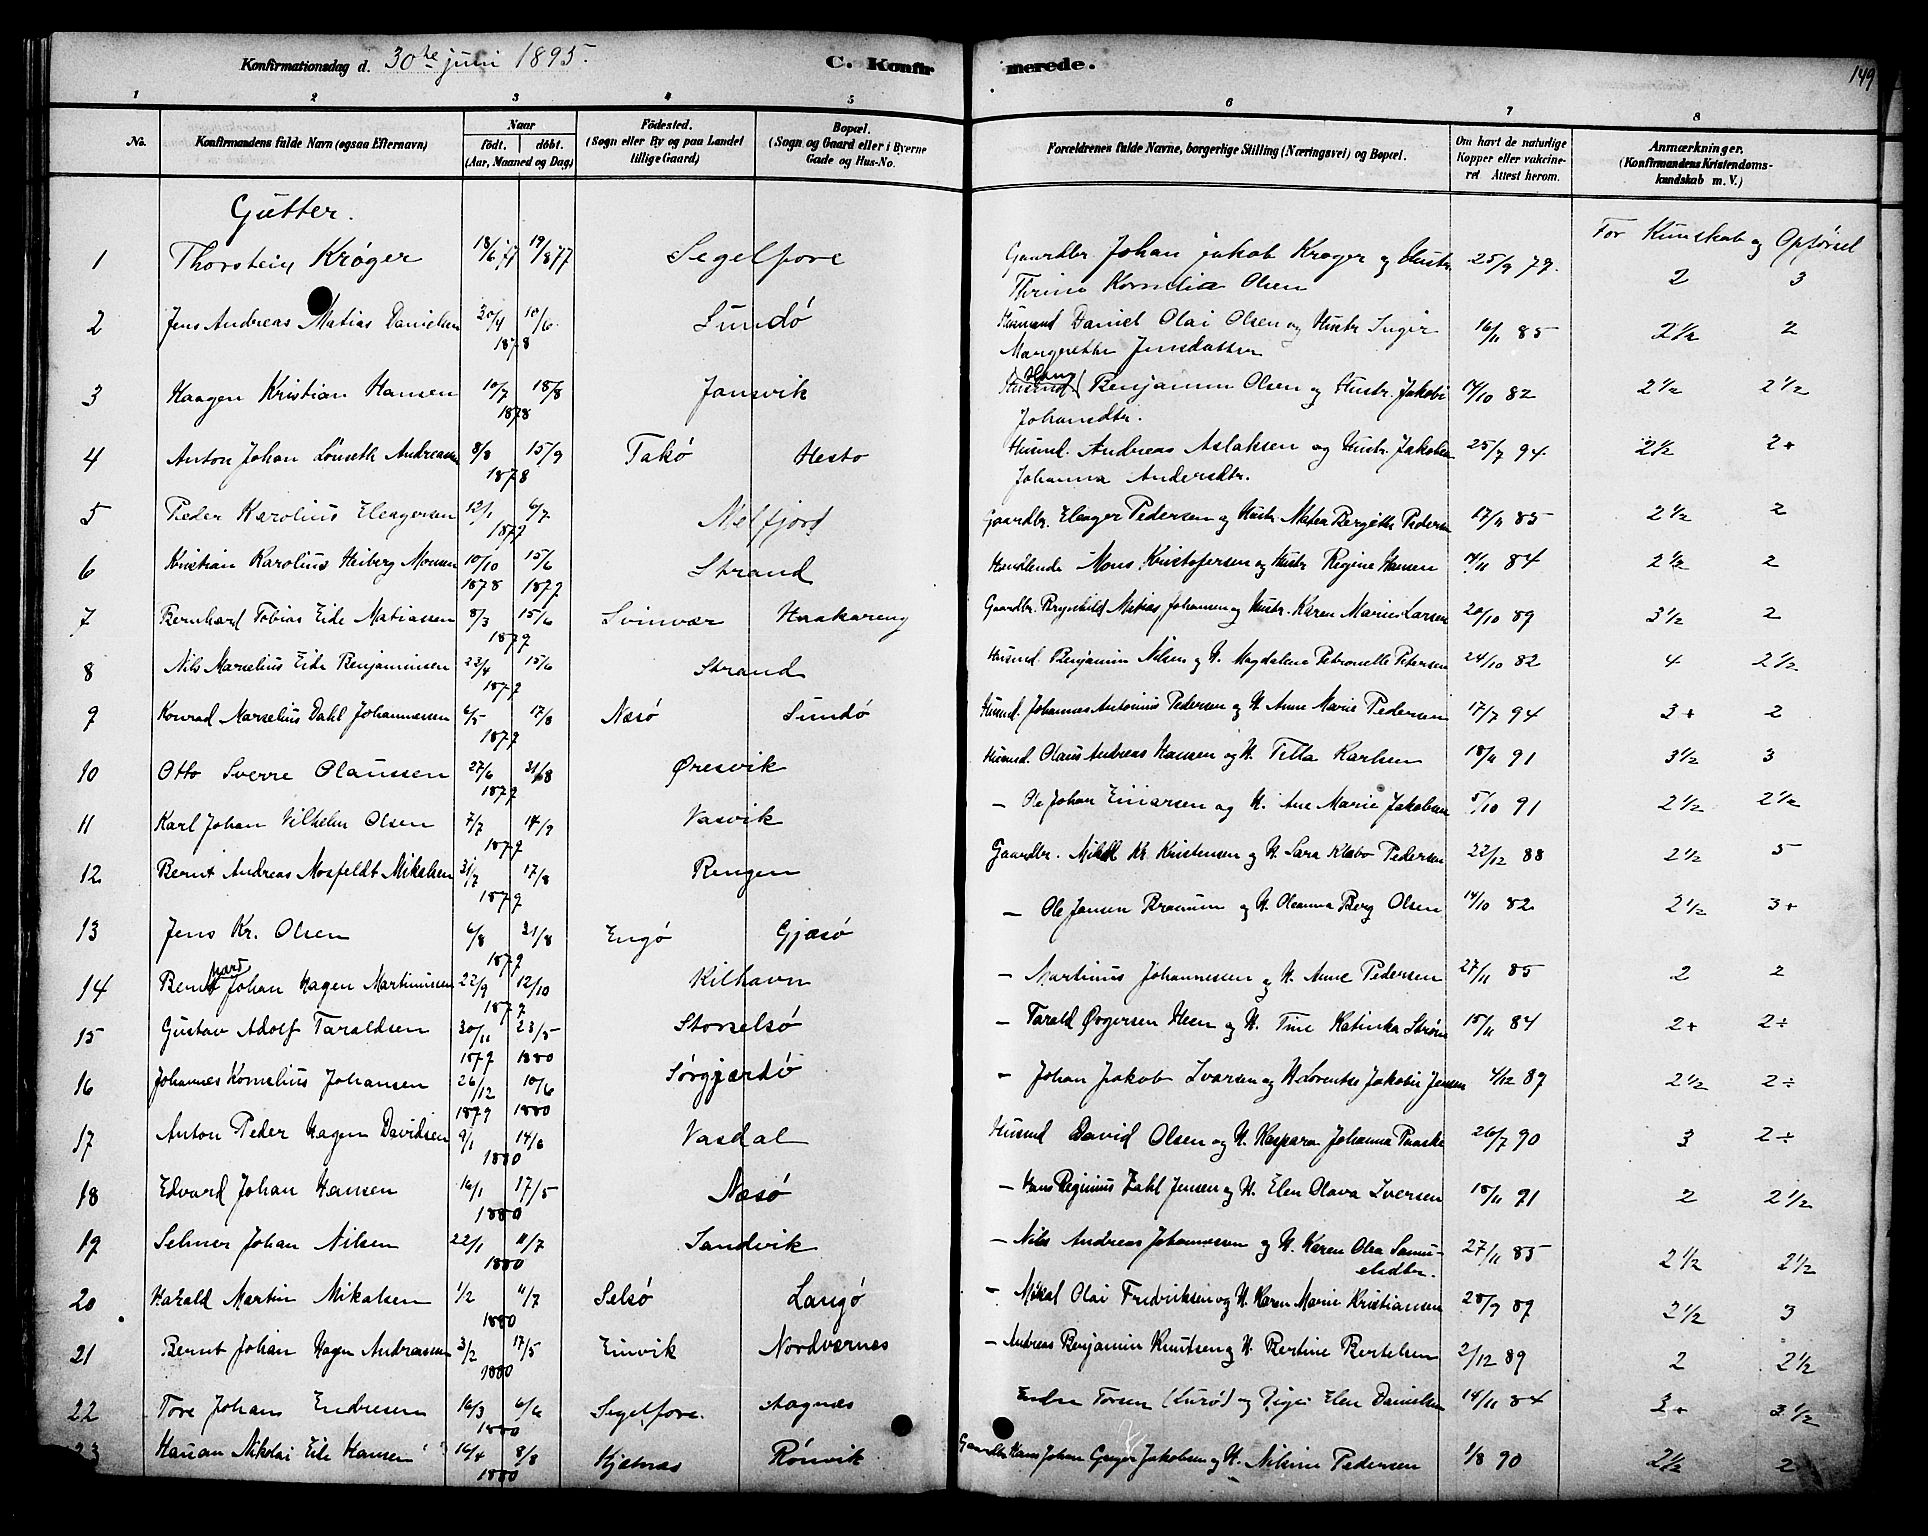 Konfirmationsdag d. 30te juni 1895. C. Konfirmerede. 149
1 2 3 4 5 6 7 8
No. Konfirmandens fulde Navn (ogsaa Efternavn) Naar födt. döbt. (Aar, Maaned og Dag) Födested. (Sogn eller By og paa Landet tillige Gaard) Bopæl. (Sogn og Gaard eller i Byerne Gade og Hus-No. Forældrenes fulde Navne, borgerlige Stilling (Næringsvei) og Bopæl. Om havt de naturlige Kopper eller vakcineret Attest herom. Anmærkninger. (Konfirmandens Kristendomskundskab m. V.)
Gutter. For Kunskab og Opførsel
1 Thorstein Krøger 18/6 77 19/8 77 Segelfore Gaardbr. Johan Jakob Krøger og Hustr. Thrine Kornelia Olsen 25/9 79. 2 3
2 Jens Andreas Matias Danielsen 30/4 10/6 1878 Sundö Husmand Daniel Olai Olsen og Hustr. Inger Margrethe Jensdatter 16/11 85 2 1/2 2
3 Haagen Kristian Hansen 10/7 18/8 1878 Jansvik Hans Benjamin Olsen og Hustr. Jakobi Johansdtr. 14/10 82 2 1/2 2 1/2
4 Anton Johan Lönseth Andreassen 8/8 15/9 1878 Takö Hestö Husmd. Andreas Aslaksen og Hustr. Jakobea Johanna Andersdtr. 25/7 94 2 1/2 2+
5 Peder Karolius Eleagersen 12/1 6/7 1879 Melfjord Gaardbr. Eleager Pedersen og Hustr. Matea Bergitte Pedersen 17/11 85 2 1/2 2
6 Kristian Karolius Heiberg Monsen 10/10 1878 15/6 1879 Strand Handlende Mons Kristofersen og Hustr Regine Hansen 14/11 84 2 1/2 2
7 Bernhard Tobias Eide Matiassen 8/3 15/6 1879 Svinvær Haakareng Gaardbr. Brynhild Matias Johansen og Hustr. Karen Marie Larsen 20/10 89 3 1/2 2
8 Nils Marselius Eide Benjaminsen 22/4 15/6 1879 Strand Husmd Benjamin Nilsen og H. Magdalena Petronelle Petersen 24/10 82 4 2 1/2
9 Konrad Marselius Dahl Johannessen 6/5 17/8 1879 Næsö Sundö Husmd. Johannes Antonius Pedersen og H. Anne Marie Pedersen 17/7 94 3+ 2
10 Otto Sverre Olaussen 27/6 31/8 1879 Øresvik Husmd. Olaus Andreas Hansen og H. Tella Karlsen 18/11 91 3 1/2 3
11 Karl Johan Vilhelm Olsen 7/7 14/9 1879 Vasvik — Ole Johan Einarsen og H. Ane Marie Jakobsen 5/10 91 2 1/2 2 1/2
12 Bernt Andreas Mosfeldt Mikalsen 31/7 17/8 1879 Rengen Gaardbr. Mikal Kr. Kristensen og H Sara Klæbo Pedersen 22/12 88 2 1/2 5
13 Jens Kr. Olsen 6/8 31/8 1879 Engö Gjæsö — Ole Jansen Braseum og H. Oleanna Berg Olsen 14/10 82 2 1/2 3+
14 Bernhard Johan Hagen Martinussen 22/9 12/10 1879 Kilhavn — Martinus Johannessen og H. Anne Pedersen 27/11 85 2 2
15 Gustav Adolf Taraldsen 30/11 1879 23/5 1880 Storselsö — Tarald Ovgersen Heen og H. Tine Katinka Ström 15/11 84 2+ 2÷
16 Johannes Kornelius Johansen 26/12 1879 10/6 1880 Sörgjærdö — Johan Jakob Ivarsen og H. Lorentse Jakobie Jensen 4/12 89 2 1/2 2÷
17 Anton Peder Hagen Davidsen 9/1 14/6 1880 Vasdal Husmd David Olsen og H. Kaspara Johanna Paaske 26/7 90 3 2÷
18 Edvard Johan Hansen 16/1 17/5 1880 Næsö — Hans Reginius Dahl Jensen og H. Elen Olava Iversen 18/11 91 2 2 1/2
19 Selmer Johan Nilsen 22/1 11/7 1880 Sandvik — Nils Andreas Johannessen og H. Karen Olea Samuelsdtr. 27/11 85 2 1/2 2 1/2
20 Harald Martin Mikalsen 1/2 11/7 1880 Selsö Langö — Mikal Olai Fredriksen og H. Karen Marie Kristiansen 28/9 89 2 1/2 3
21 Bernt Johan Hagen Andreassen 3/2 17/5 1880 Einvik Nordvernes — Andreas Benjamin Knutsen og H. Bertine Bertelsen 2/12 89 2 2 1/2
22 Tore Johans Endresen 16/3 6/6 1880 Segelfore. Aagnæs Endre Torsen (Lurö) og Pige Elen Danielsen 14/11 84 3+ 3 1/2
23 Hauan Nikolai Eide Hansen 16/4 8/8 1880 Hjætnæs Rönvik Gaardbr Hans Johan Greger Jakobsen og H. Nilsine Pedersen 1/8 90 2 1/2 2